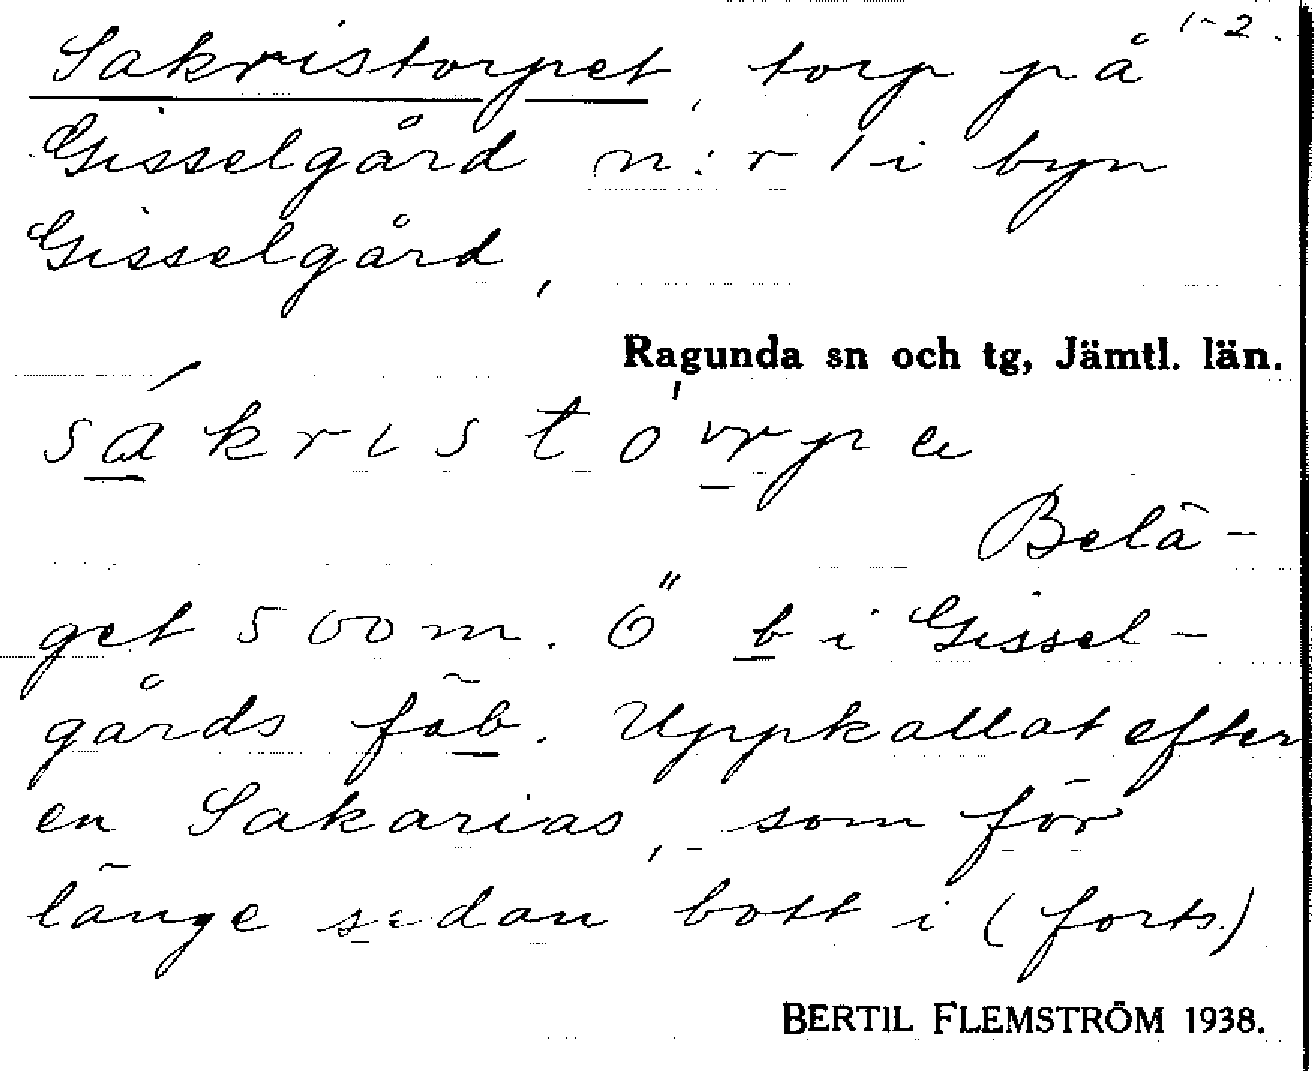 1-2.
Sakristorpet, torp på
Gisselgård n:r 1 i byn
Gisselgård,
Ragunda sn och tg, Jämtl. län.
Belä-
get 500 m. Ö b i Gissel-
gårds fäb. Uppkallat efter
en Sakarias, som för
länge sedan bott i (forts.)
BERTIL FLEMSTRÖM 1938.